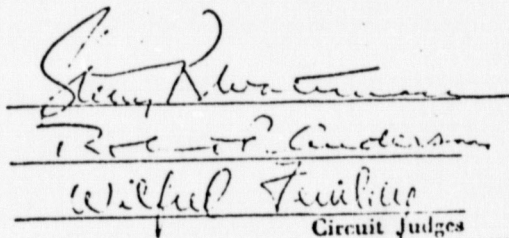 Sterry R. Waterman
Robert P. Anderson
Wilfred Feinberg
Circuit Judges